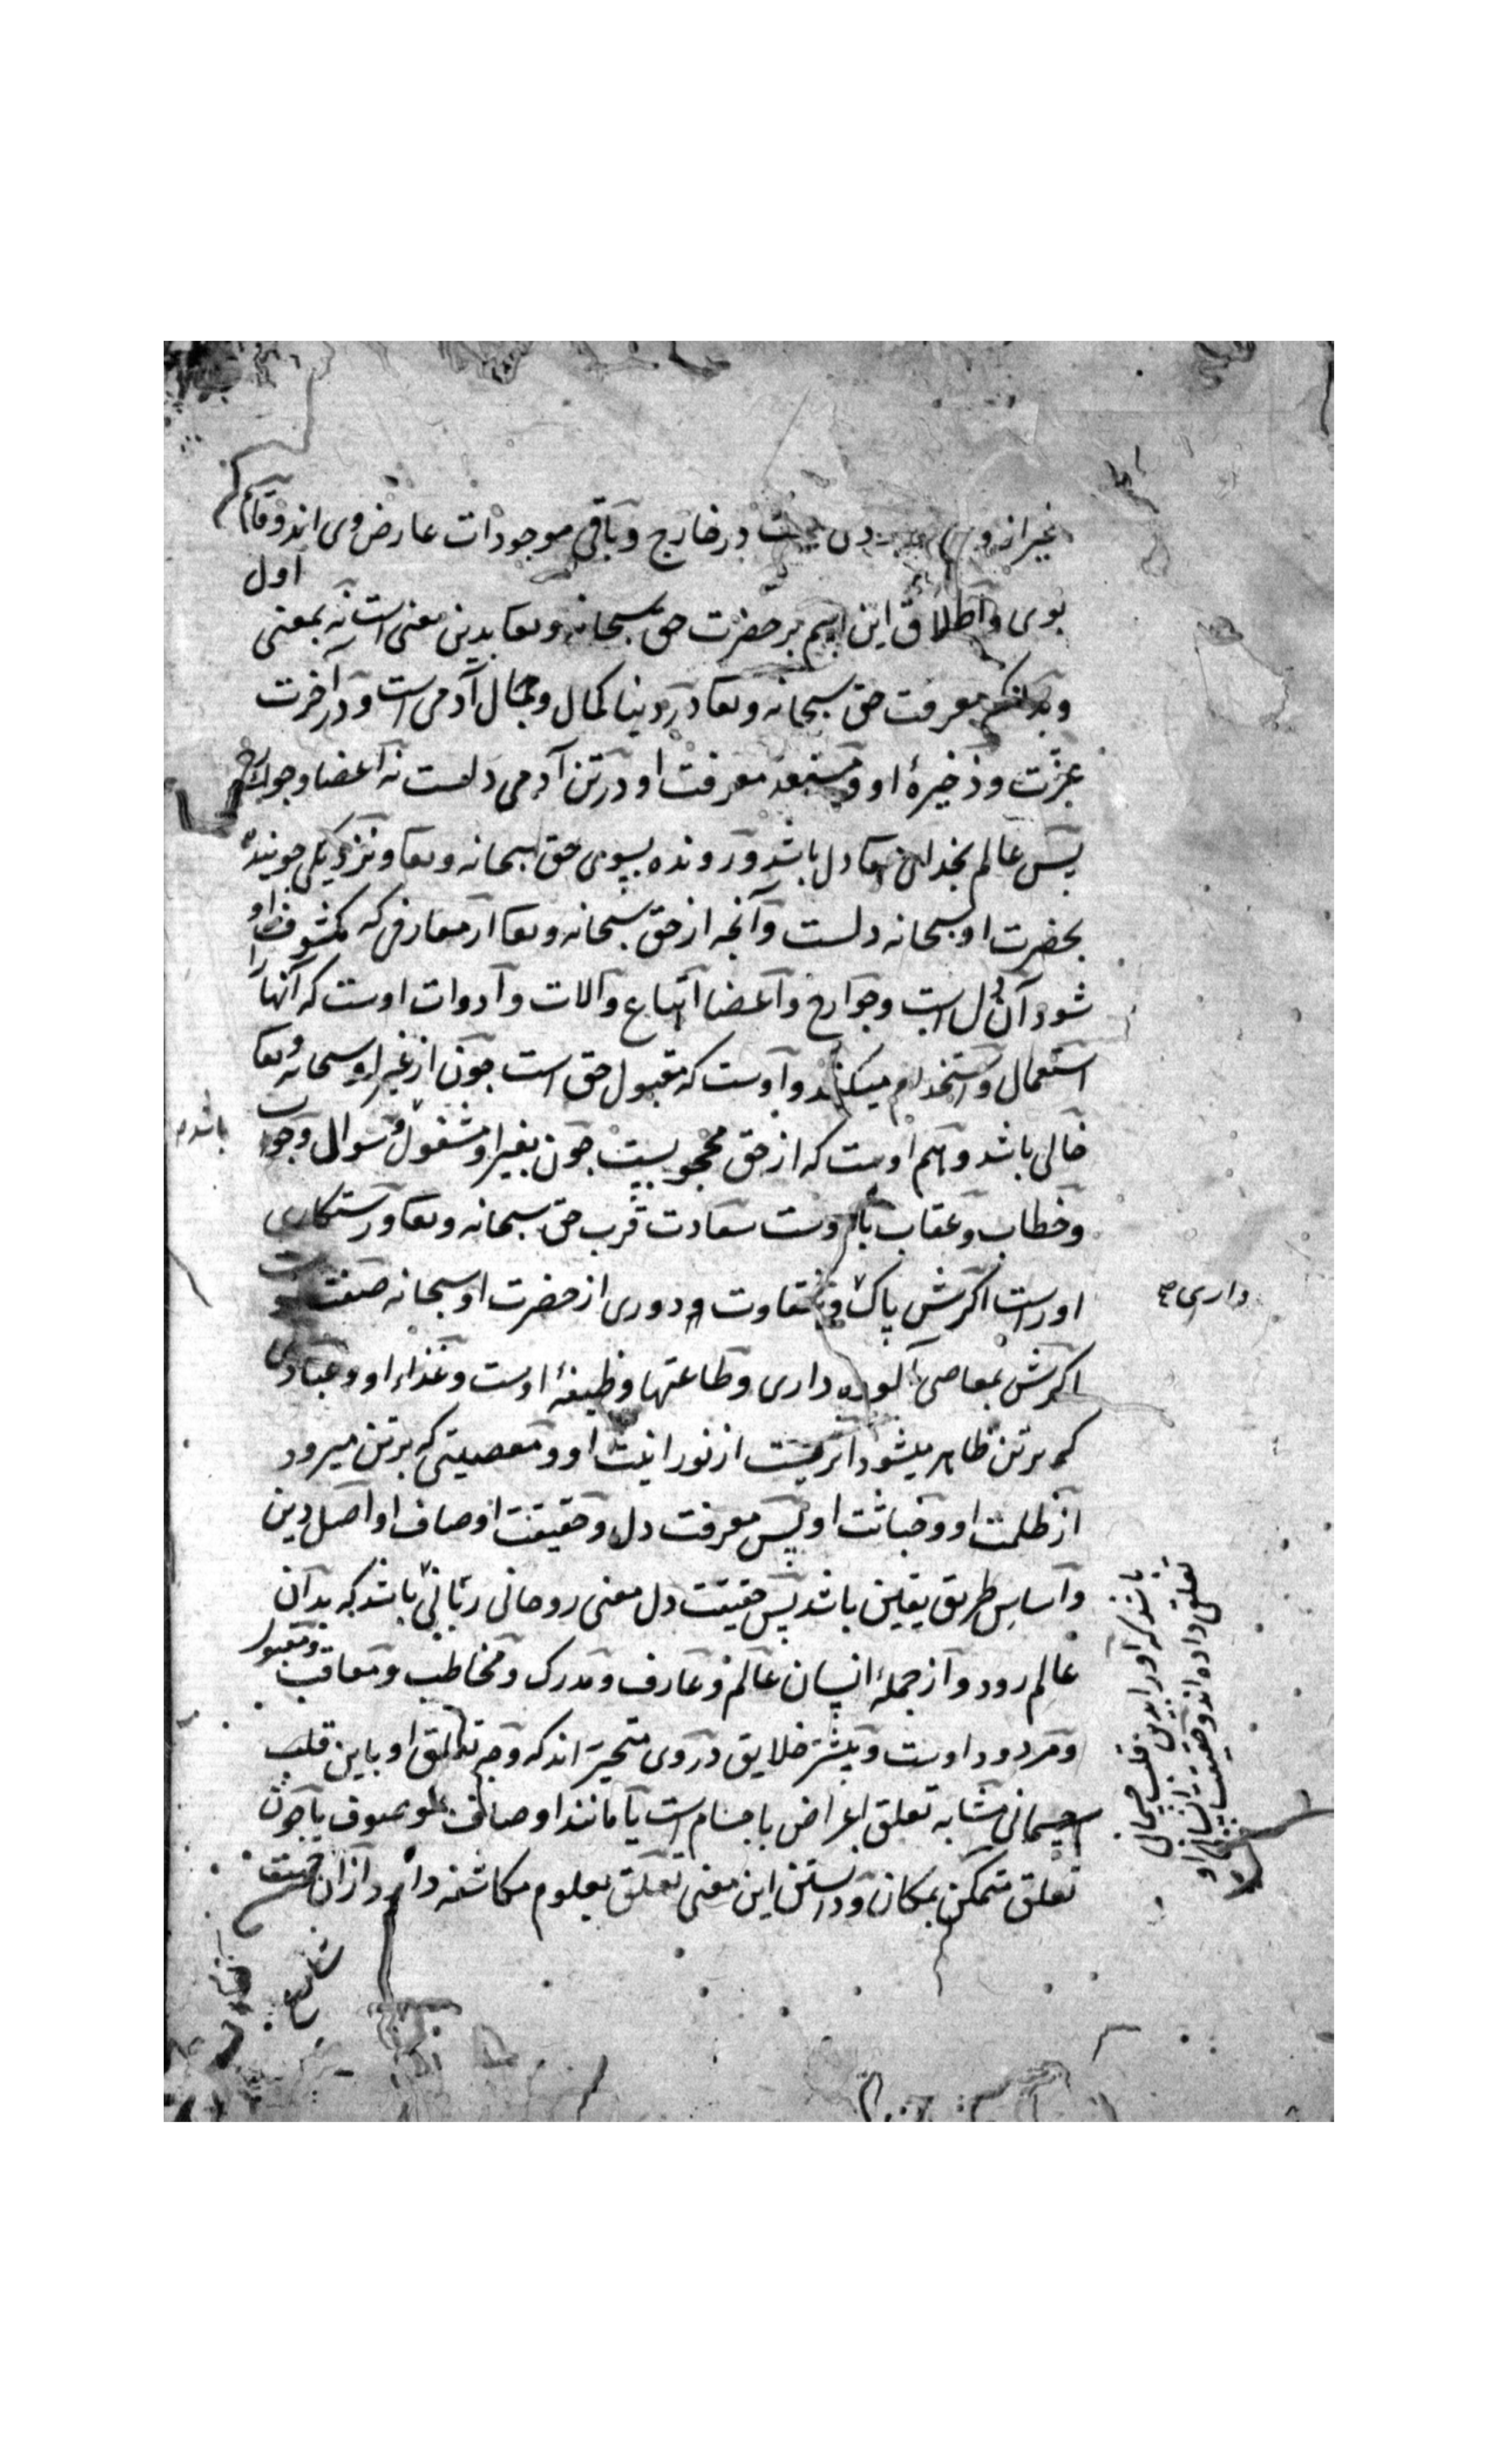 غیر از وی در خارج و باقی موجودات عارض وی اند و قائم
بوی و اطلاق این اسم بر حضرت حق سبحانه و تعا بدین معنی است نه بمعنی اول
و بدانکه معرفت حق سبحانه و تعا در دنیا کمال و جمال آدمی است و در آخرت
عزت و ذخیرهٔ او و مستعد معرفت او در تن آدمی دلست نه اعضا و جوارح
پس عالم بخدای تعا دل باشد و رونده بسوی حق سبحانه و تعا و نزدیکی جوینده
بحضرت او سبحانه دلست و آنچه از حق سبحانه و تعا از معارفی که مکشوف او
شود آن دل است و جوارح و اعضا اتباع و آلات و ادوات اوست که آنها را
استعمال و استخدام میکند و اوست که مقبول حق است چون از غیر او سبحانه و تعا
خالی باشد و هم اوست که از حق محجوبیست چون بغیر او مشغول و سوال و جواب
باشد
و خطاب و عقاب با اوست سعادت قرب حق سبحانه و تعا و رستکاری
اوراست اکرش پاک و شقاوت و دوری از حضرت او سبحانه صفت اوست
داری
اکرش بمعاصی آلوده داری و طاعتها وظیفهٔ اوست و غذاء او و عبادتی
که بر تن ظاهر میشود اثریست از نورانیت او و معصیتی که بر تن میرود
از ظلمت او و خباثت او پس معرفت دل و حقیقت اوصاف او اصل دین
و اساس طریق یقین باشد پس حقیقت دل معنی روحانی ربانی باشد که بدان
عالم رود و از جملهٔ انسان عالم و عارف و مدرک و مخاطب و معاقب و مقبول
و مردود اوست و بیشتر خلایق در وی متحیر اند که وجه تعلق او باین قلب
جسمانی مشابه تعلق اعراض باجسام است یا مانند اوصاف بموصوف یا چون
تعلق متمکن بمکان و دانستن این معنی تعلق بعلوم مکاشفه دارد و از آن جهت
باشد که اورا بدین قلب جسمانی
تعلق داده اند و حقیقت انسانی او
شارع